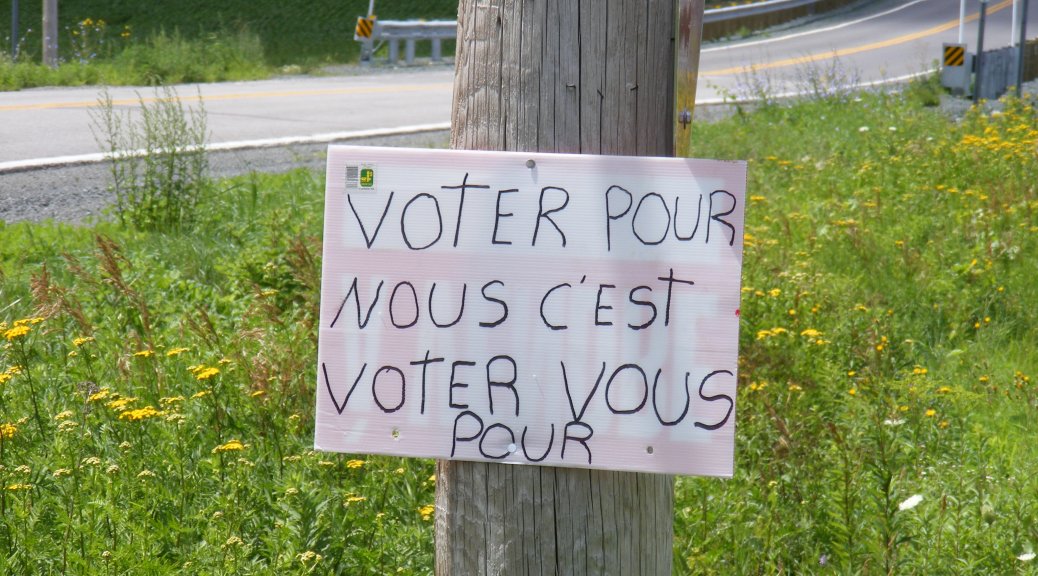 VOTER POUR
NOUS C'EST
VOTER VOUS
POUR